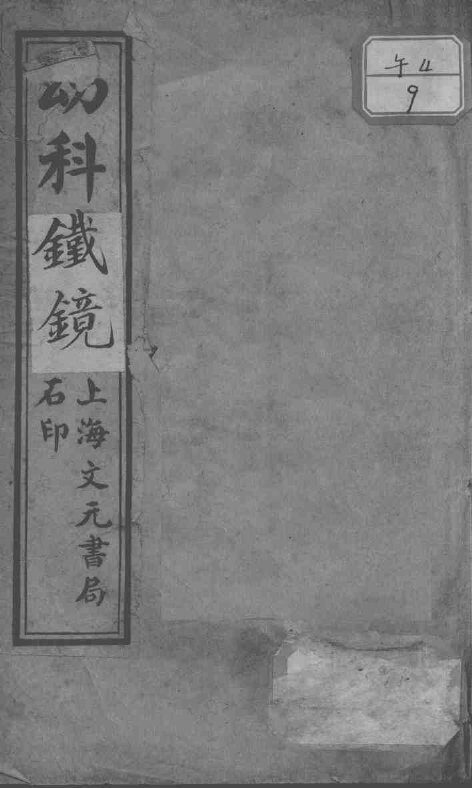 幼科鐵鏡
上海文元書局
石印
午 4
9